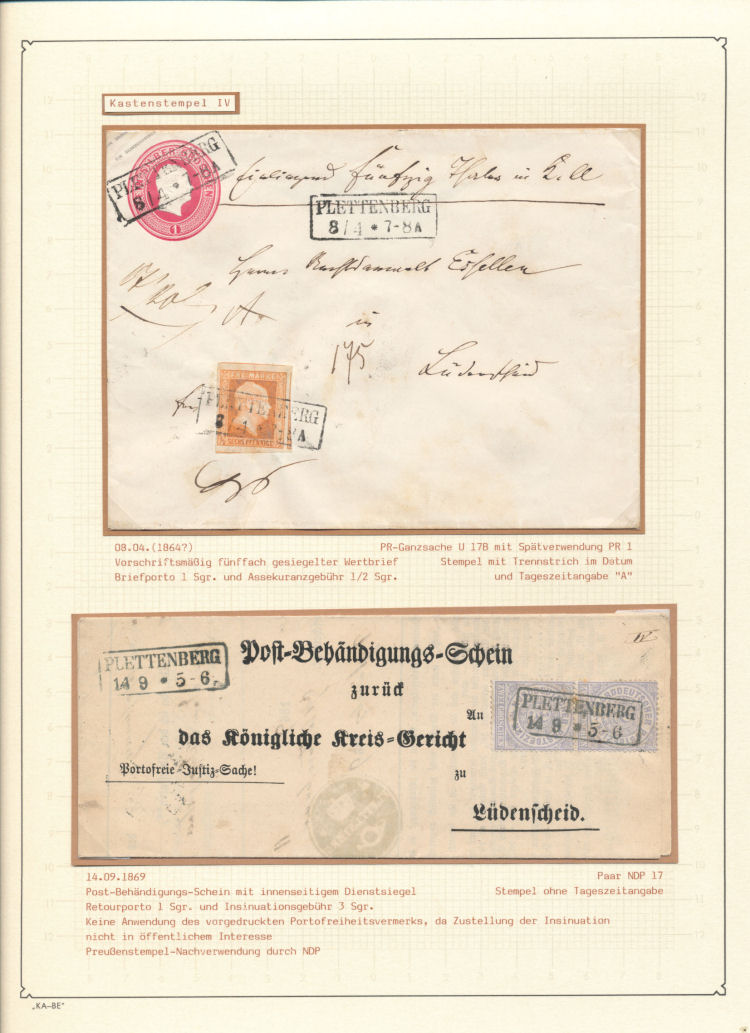 Kastenstempel IV
EIN SILBER GROSCHEN
1
PLETTENBERG
8/4 * 7-8A
einliegend fünfzig Thaler in
PLETTENBERG
8/4 * 7-8A
Herrn Rechtsanwalt Esellen
in
175
Lüdenscheid
FREIMARKE
SECHS PFENNIGE
PLETTENBERG
08.04.(1864?)
PR-Ganzsache U 17B mit Spätverwendung PR 1
Vorschriftsmäßig fünffach gesiegelter Wertbrief
Stempel mit Trennstrich im Datum
Briefporto 1 Sgr. und Assekuranzgebühr 1/2 Sgr.
und Tageszeitangabe "A"
IV
PLETTENBERG
14 9 * 5-6
Post-Behändigungs-Schein
zurück
An
das Königliche Kreis-Gericht
Portofreie Justiz-Sache!
zu
Lüdenscheid.
NORDDEUTSCHER
PLETTENBERG
14 9 * 5-6
14.09.1869
Paar NDP 17
Post-Behändigungs-Schein mit innenseitigem Dienstsiegel
Stempel ohne Tageszeitangabe
Retourporto 1 Sgr. und Insinuationsgebühr 3 Sgr.
Keine Anwendung des vorgedruckten Portofreiheitsvermerks, da Zustellung der Insinuation
nicht in öffentlichem Interesse
Preußenstempel-Nachverwendung durch NDP
„KA-BE"